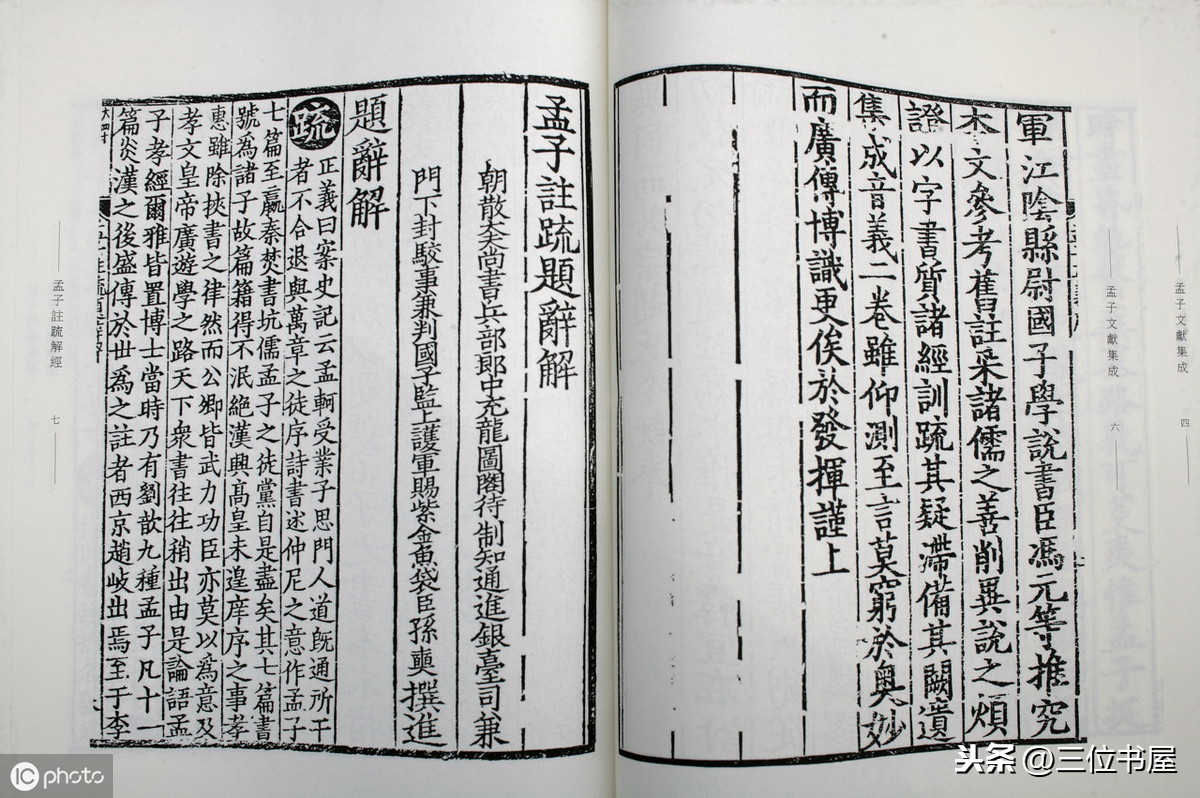 軍江陰縣尉國子學說書臣馮元等推究
本文參考舊註采諸儒之善削異說之煩
證以字書質諸經訓疏其疑滯備其闕遺
集成音義二卷雖仰測至言莫窮於奧妙
而廣傳博識更俟於發揮謹上
孟子文獻集成
六
孟子文獻集成
四
孟子註疏題辭解
朝散大夫尚書兵部郎中充龍圖閣待制知通進銀臺司兼
門下封駁事兼判國子監上護軍賜紫金魚袋臣孫奭撰進
題辭解
疏
正義曰案史記云孟軻受業子思門人道既通所干
者不合退與萬章之徒序詩書述仲尼之意作孟子
七篇至嬴秦焚書坑儒孟子之徒黨自是盡矣其七篇書
號爲諸子故篇籍得不泯絕漢興高皇未遑庠序之事孝
惠雖除挾書之律然而公卿皆武力功臣亦莫以爲意及
孝文皇帝廣遊學之路天下衆書往往稍出由是論語孟
子孝經爾雅皆置博士當時乃有劉歆九種孟子凡十一
篇炎漢之後盛傳於世爲之註者西京趙岐出焉至于李
孟子註疏解經
七
IC photo
头条 @三位书屋